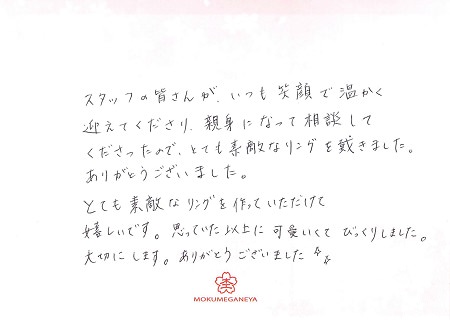 スタッフの皆さんが、いつも笑顔で温かく
迎えてくださり、親身になって相談して
くださったので、とても素敵なリングを戴きました。
ありがとうございました。
とても素敵なリングを作っていただけて
嬉しいです。思っていた以上に可愛いくてびっくりしました。
大切にします。ありがとうございました
MOKUMEGANEYA